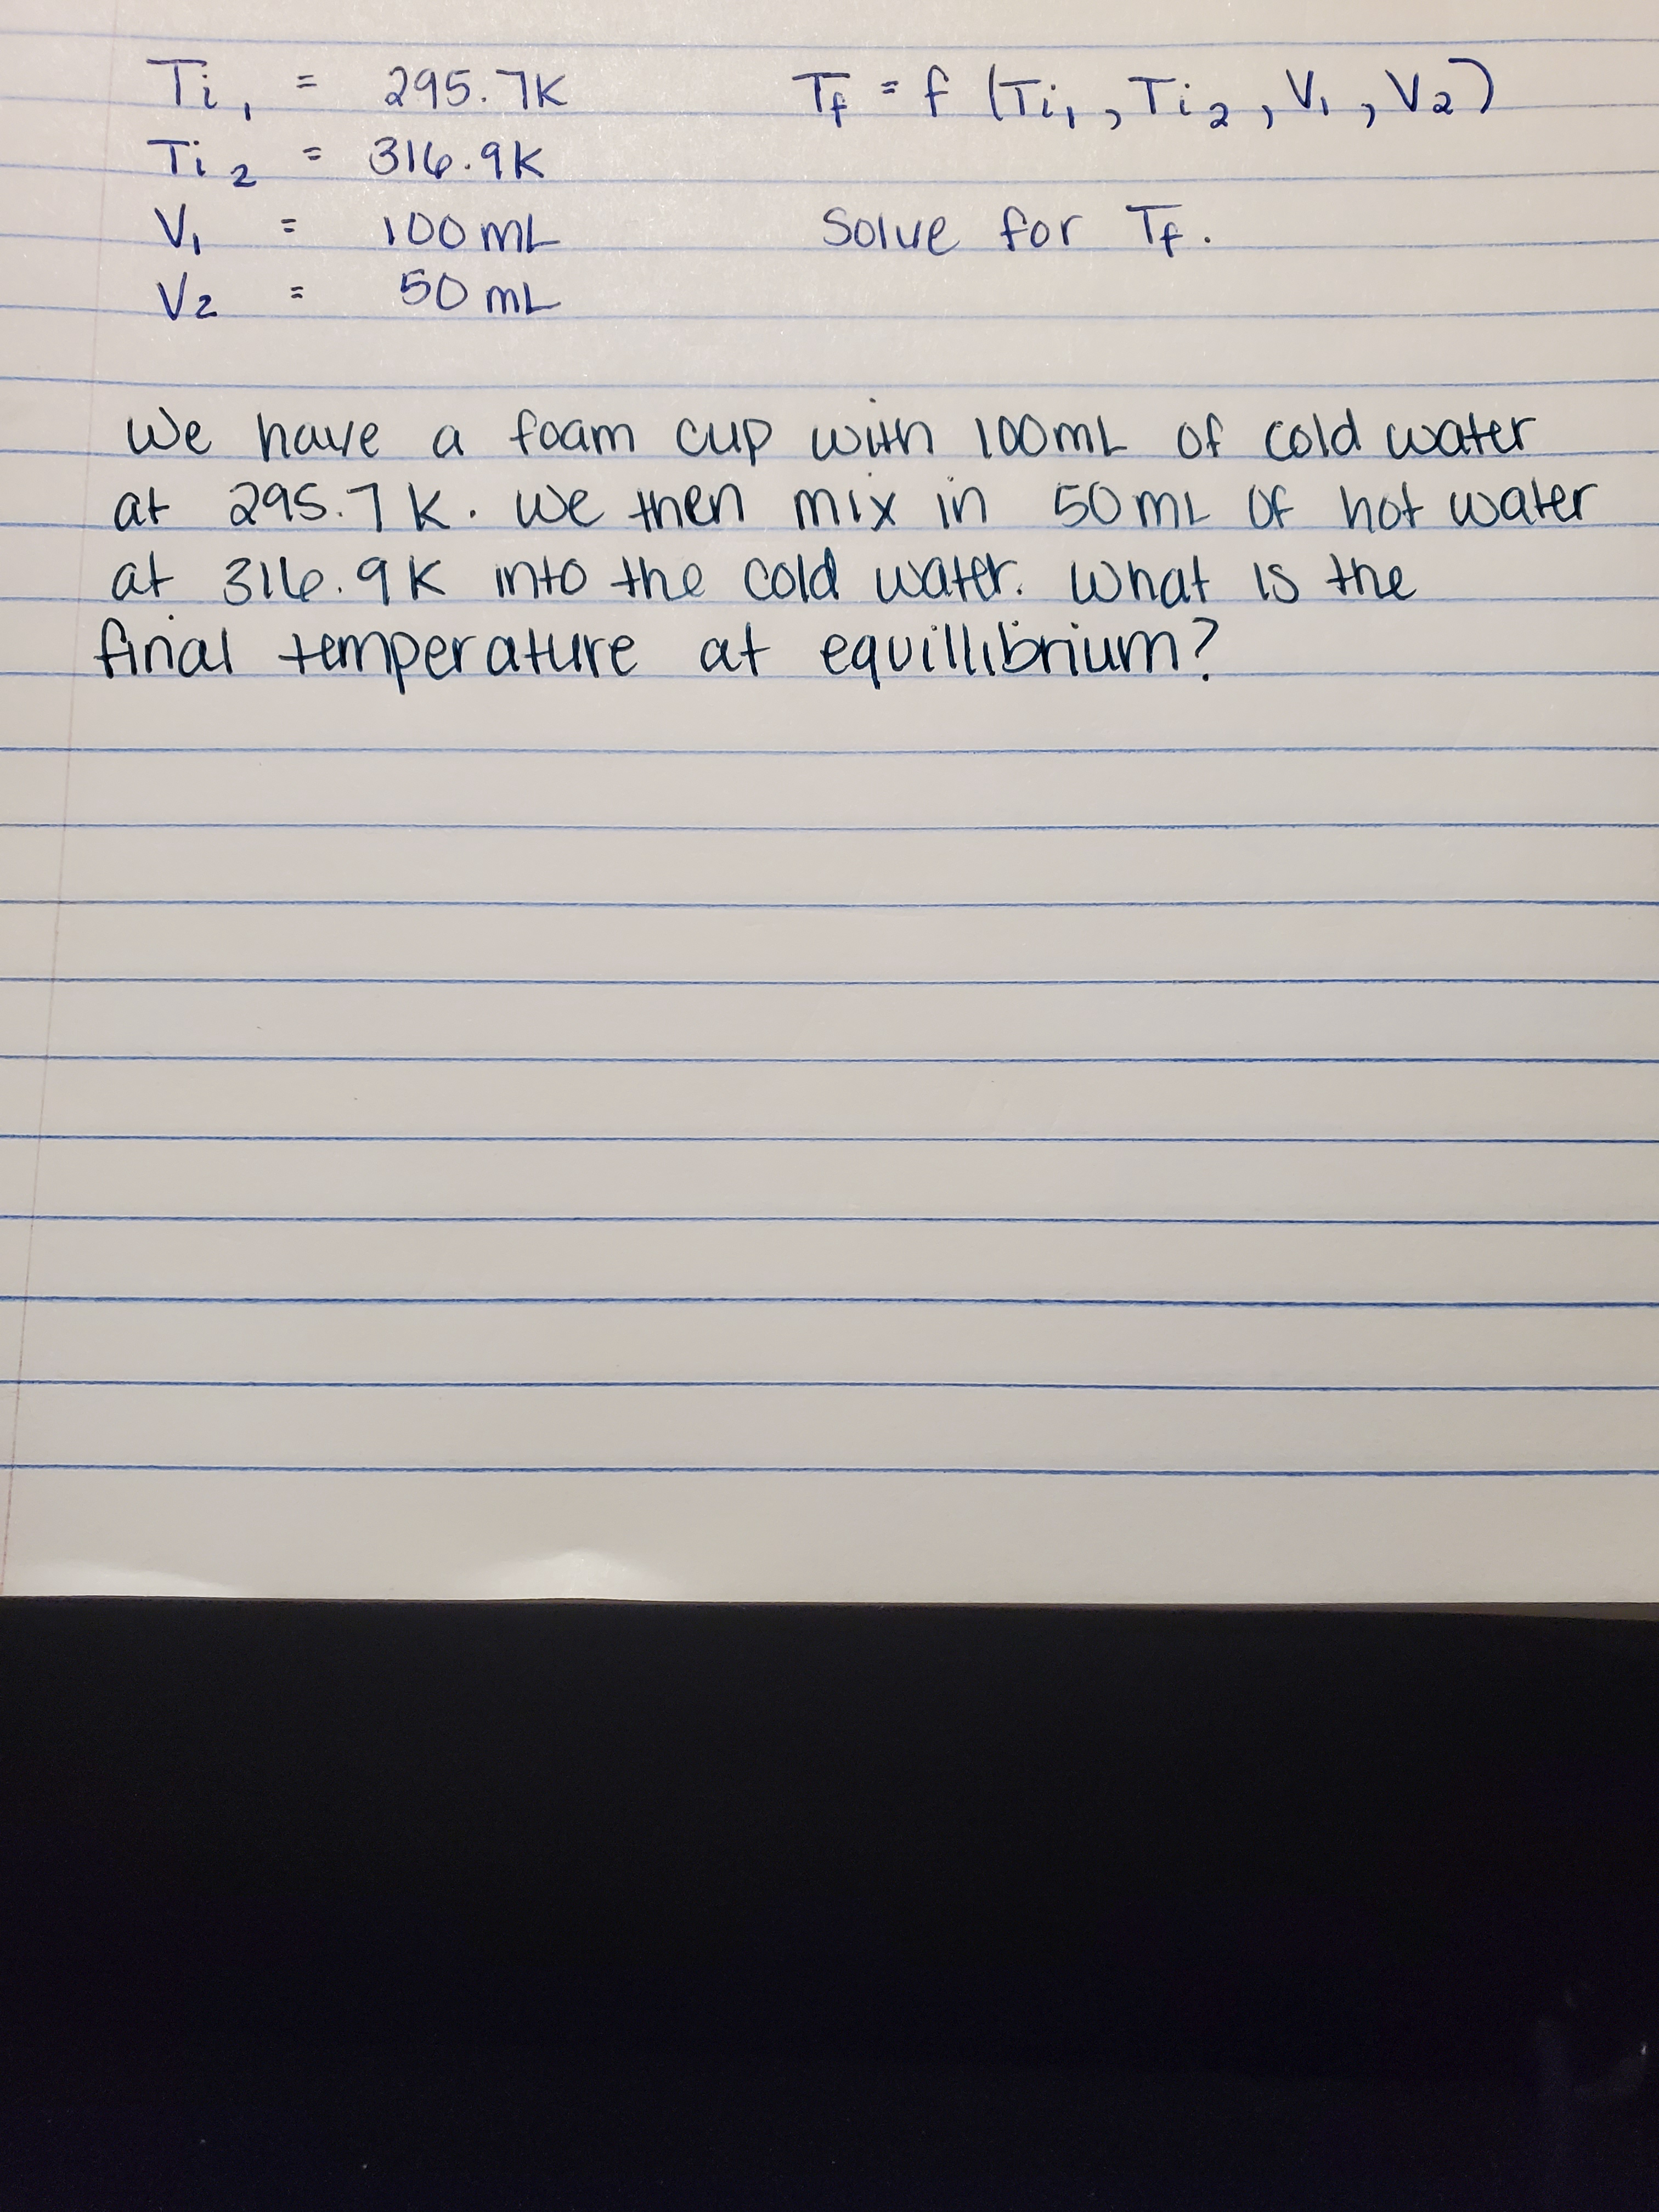 Ti₁ = 295.7K Tf = f (Ti₁, Ti₂, V₁, V₂)
Ti₂ = 316.9K
V₁ = 100mL Solve for Tf.
V₂ = 50mL
We have a foam cup with 100mL of cold water
at 295.7K. We then mix in 50mL of hot water
at 316.9K into the cold water. What is the
final temperature at equillibrium?